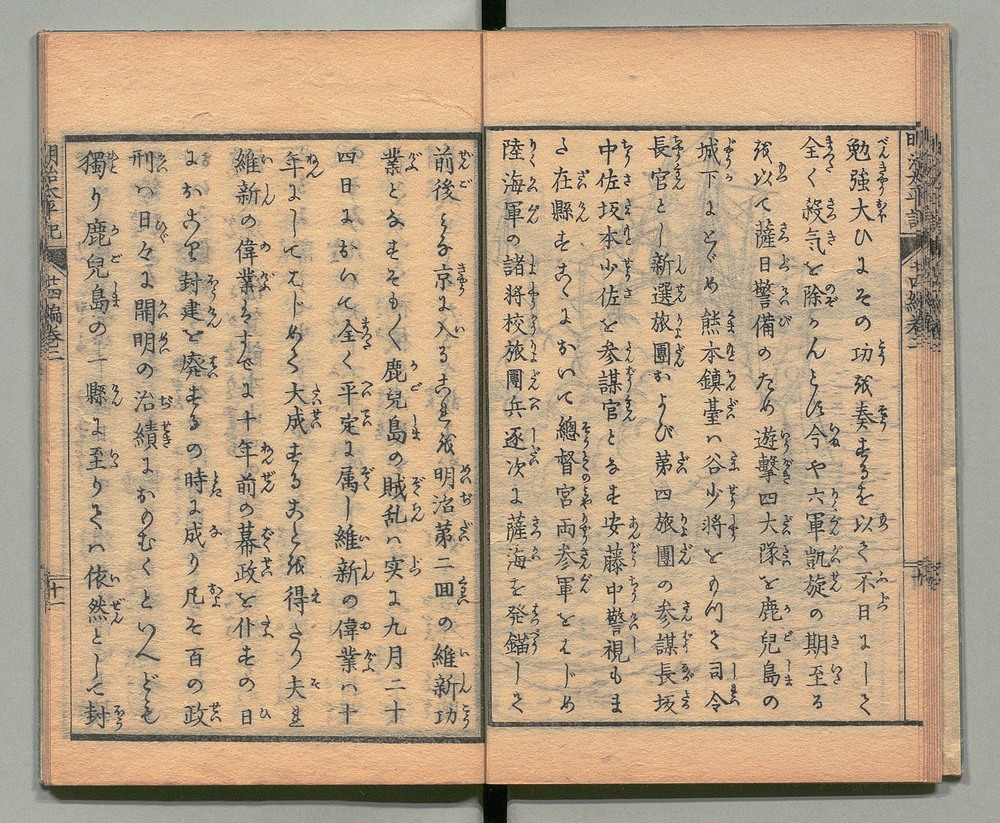 勉強大ひにその功を奏するを以て不日にして
全く殺気を除かんとす今や六軍凱旋の期至る
を以て薩日警備のため遊撃四大隊を鹿児島の
城下にとゞめ熊本鎮臺ハ谷少将をもつて司令
長官とし新選旅團および第四旅團の参謀長坂
中佐坂本少佐を参謀官となす安藤中警視もま
た在縣すこゝにおいて總督宮両参軍をはじめ
陸海軍の諸将校旅團兵逐次に薩海を発錨して
前後みな京に入るこれを明治第二回の維新功
業となすそもそも鹿兒島の賊乱ハ実に九月二十
四日において全く平定に属し維新の偉業ハ十
年にしてはじめて大成することを得たり夫れ
維新の偉業たるすでに十年前の幕政を仆すの日
におこり封建を廃するの時に成り凡そ百の政
刑ハ日々に開明の治績におもむくといへども
獨り鹿兒島の一縣に至りてハ依然として封
明治太平記
廿四編巻二
十一